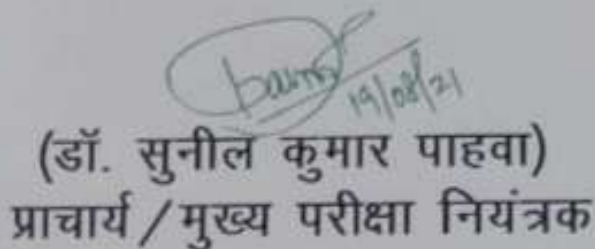 19/08/21
(डॉ. सुनील कुमार पाहवा)
प्राचार्य / मुख्य परीक्षा नियंत्रक